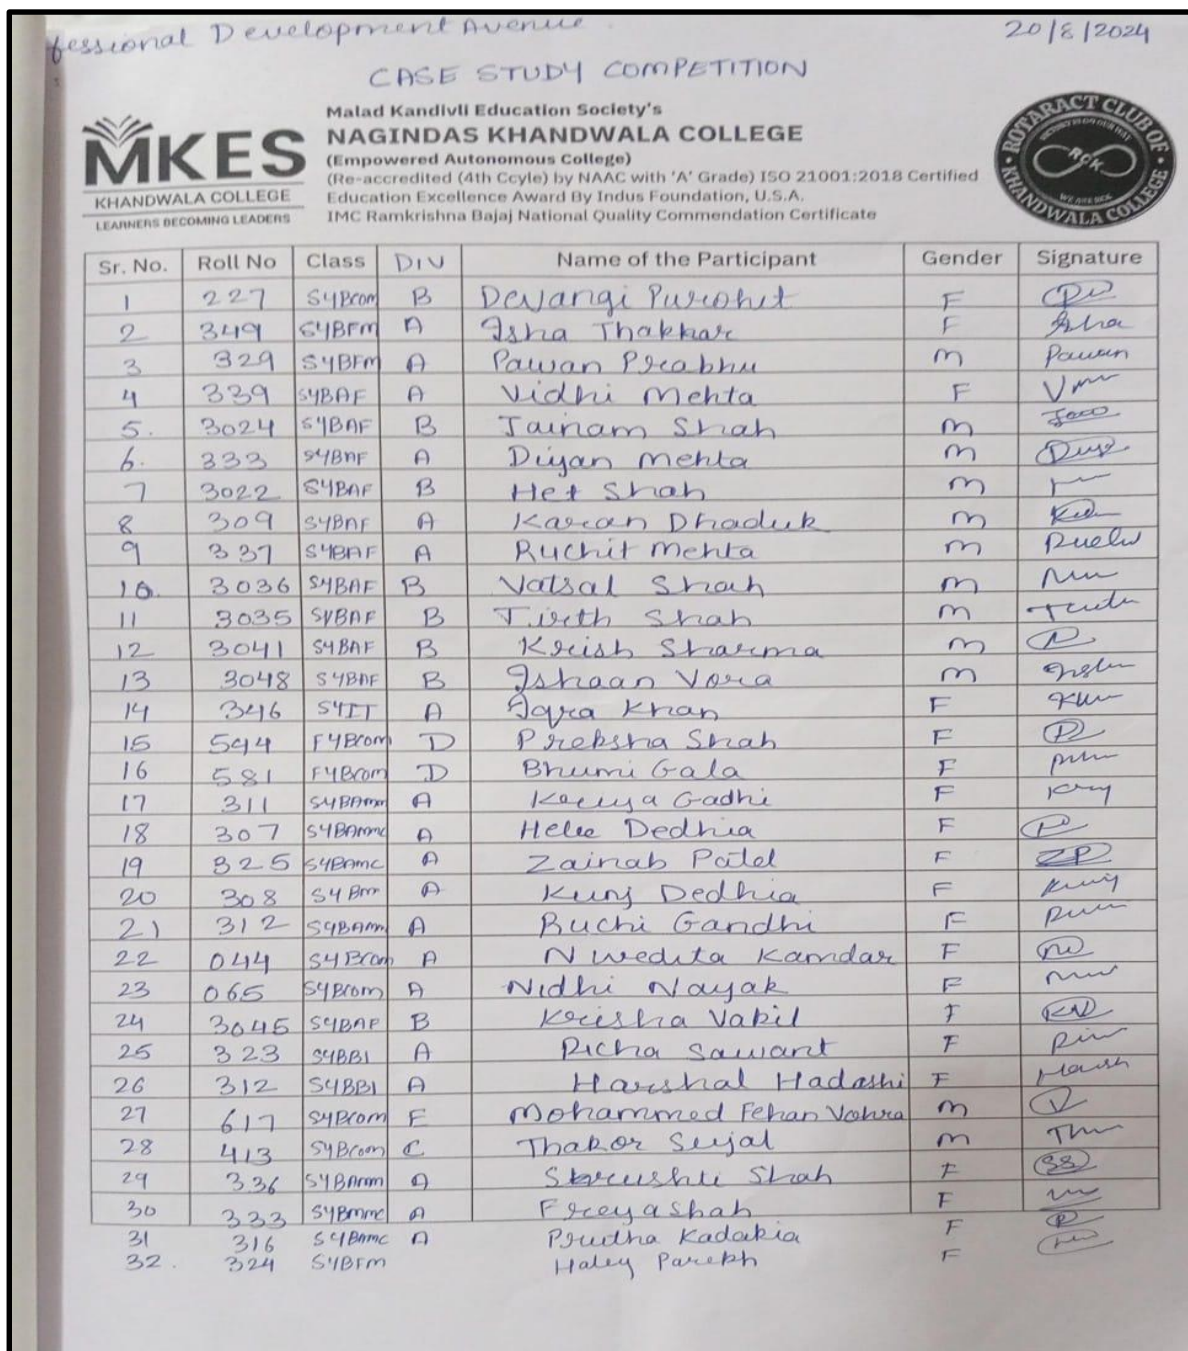 fessional Development Avenue.
20/8/2024
CASE STUDY COMPETITION
MKES
KHANDWALA COLLEGE
LEARNERS BECOMING LEADERS
Malad Kandivli Education Society's
NAGINDAS KHANDWALA COLLEGE
(Empowered Autonomous College)
(Re-accredited (4th Ccyle) by NAAC with 'A' Grade) ISO 21001:2018 Certified
Education Excellence Award By Indus Foundation, U.S.A.
IMC Ramkrishna Bajaj National Quality Commendation Certificate
ROTARACT CLUB OF
RCK
KHANDWALA COLLEGE
Sr. No. Roll No Class DIV Name of the Participant Gender Signature
1 227 SYBcom B Devangi Purohit F
2 349 SYBFM A Isha Thakkar F Isha
3 329 SYBFM A Pawan Prabhu M Pawan
4 339 SYBAF A Vidhi Mehta F
5. 3024 SYBAF B Jainam Shah M
6. 333 SYBAF A Diyan Mehta M
7 3022 SYBAF B Het Shah M
8 309 SYBAF A Karan Dhaduk M
9 337 SYBAF A Ruchit Mehta M
10. 3036 SYBAF B Vatsal Shah M
11 3035 SYBAF B Tirth Shah M
12 3041 SYBAF B Krish Sharma M
13 3048 SYBAF B Ishaan Vora M
14 346 SYIT A Iqra Khan F
15 594 FYBcom D Preksha Shah F
16 581 FYBcom D Bhumi Gala F
17 311 SYBAmm A Kavya Gadhi F
18 307 SYBAmmc A Helee Dedhia F
19 325 SYBAMC A Zainab Patel F ZP
20 308 SYBm A Kunj Dedhia F
21 312 SYBAmm A Ruchi Gandhi F
22 044 SYBcom A Nivedita Kamdar F
23 065 SYBcom A Nidhi Nayak F
24 3045 SYBAF B Krisha Vakil F
25 323 SYBBI A Richa Sawant F
26 312 SYBBI A Harshal Hadashi F
27 617 SYBcom E Mohammed Fehan Vohra M
28 413 SYBcom C Thakor Sujal M
29 336 SYBAmm A Shrushti Shah F SS
30 333 SYBmmc A Freya Shah F
31 316 SYBAmc A Prutha Kadakia F
32. 324 SYBFM Haley Parekh F